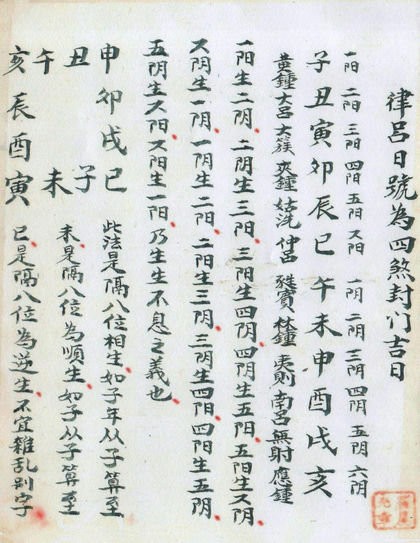 律吕日號為四煞封门吉日
一阳 二阳 三阳 四阳 五阳 六阳 一阴 二阴 三阴 四阴 五阴 六阴
子丑寅卯辰巳午未申酉戌亥
黄鍾 大吕 太簇 夾鍾 姑洗 仲吕 蕤賓 林鍾 夷則 南吕 無射 應鍾
一阳生二阴、二阴生三阳、三阳生四阴、四阴生五阳、五阳生六阴
六阴生一阴、一阴生二阳、二阳生三阴、三阴生四阳、四阳生五阴
五阴生六阳、六阳生一阳、乃生生不息之義也
申卯戌巳 此法是隔八位相生如子年从子算至
丑 子 未是隔八位為順生如子从子算至
午 未
亥辰酉寅 巳是隔八位為逆生不宜雜乱别字